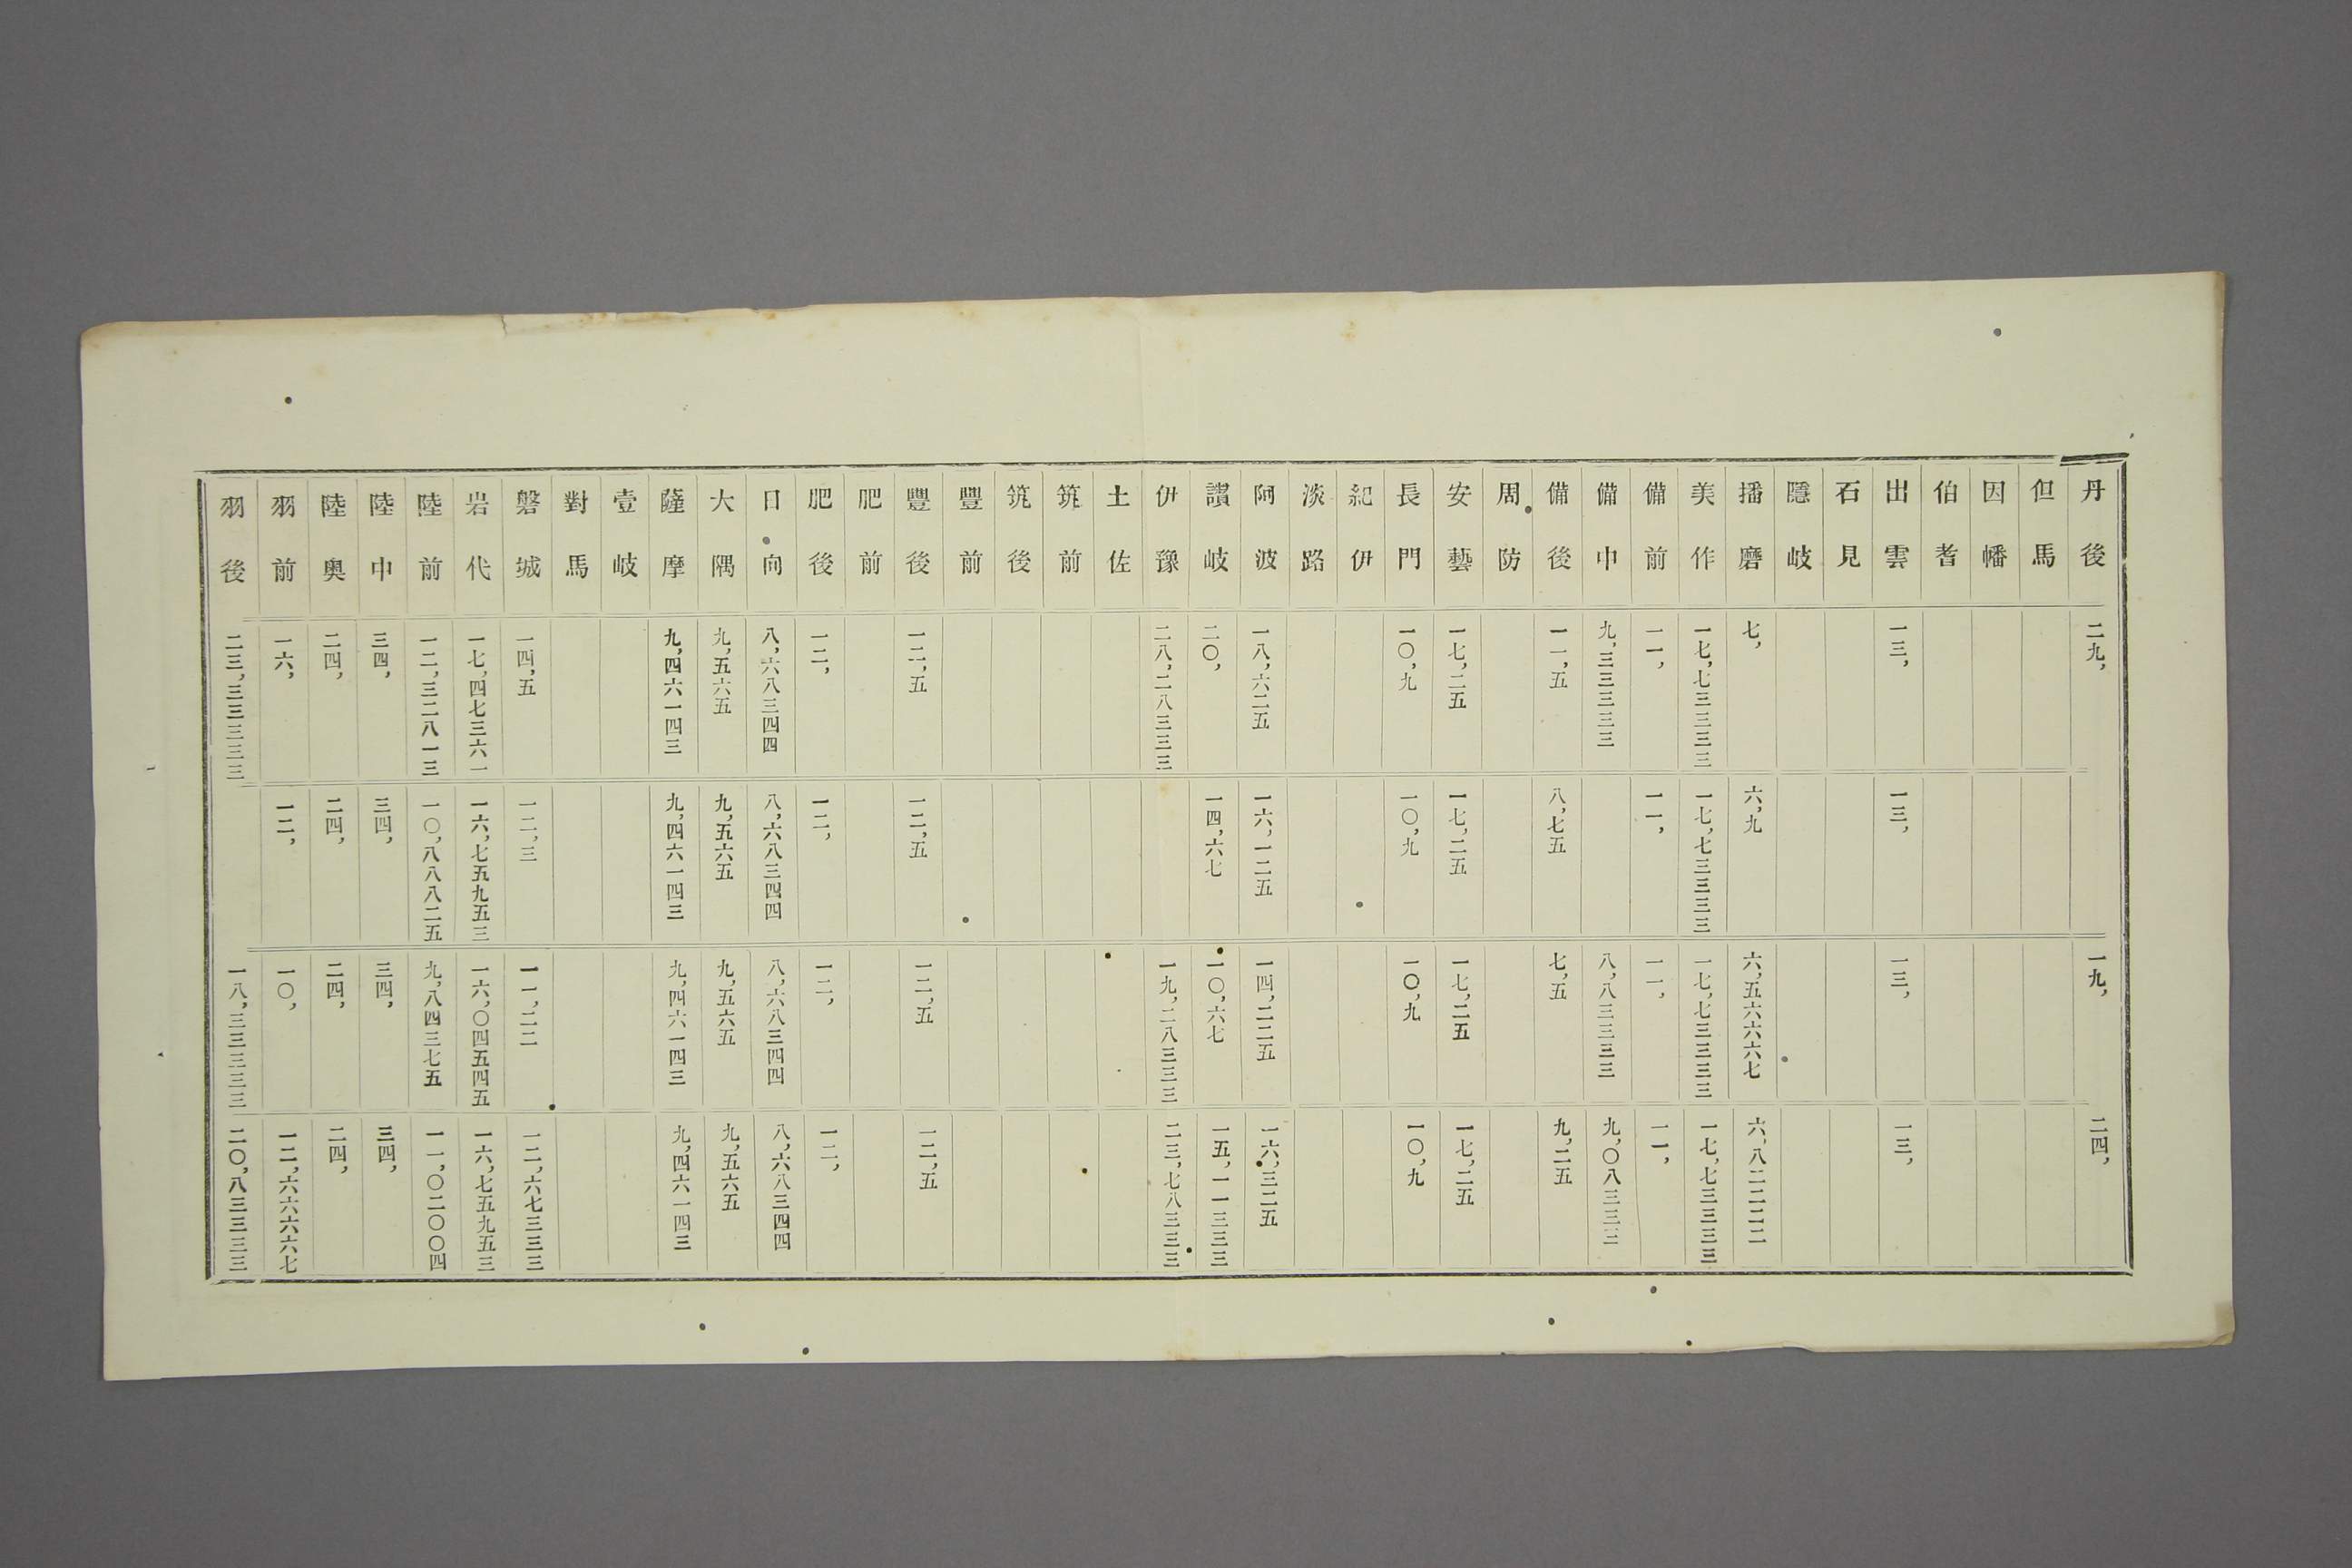 丹後 二九, 一九, 二四,
但馬
因幡
伯耆
出雲 一三, 一三, 一三, 一三,
石見
隱岐
播磨 七, 六,九 六,五六六六六七 六,八二二二二
美作 一七,七三三三三 一七,七三三三三三 一七,七三三三三 一七,七三三三三
備前 一一, 一一, 一一, 一一,
備中 九,三三三三三 八,八三三三三 九,〇八三三三
備後 一一,五 八,七五 七,五 九,二五
周防
安藝 一七,二五 一七,二五 一七,二五 一七,二五
長門 一〇,九 一〇,九 一〇,九 一〇,九
紀伊
淡路
阿波 一八,六二五 一六,一二五 一四,二二五 一六,三二五
讃岐 二〇, 一四,六七 一〇,六七 一五,一一三三三
伊豫 二八,二八三三三 一九,二八三三三 二三,七八三三三
土佐
筑前
筑後
豐前
豐後 一二,五 一二,五 一二,五 一二,五
肥前
肥後 一二, 一二, 一二, 一二,
日向 八,六八三四四 八,六八三四四 八,六八三四四 八,六八三四四
大隅 九,五六五 九,五六五 九,五六五 九,五六五
薩摩 九,四六一四三 九,四六一四三 九,四六一四三 九,四六一四三
壹岐
對馬
磐城 一四,五 一二,三 一一,二二 一二,六七三三三
岩代 一七,四七三六一 一六,七五九五三 一六,〇四五四五 一六,七五九五三
陸前 一二,三二八一三 一〇,八八八二五 九,八四三七五 一一,〇二〇〇四
陸中 三四, 三四, 三四, 三四,
陸奥 二四, 二四, 二四, 二四,
羽前 一六, 一二, 一〇, 一二,六六六六七
羽後 二三,三三三三三 一八,三三三三三 二〇,八三三三三